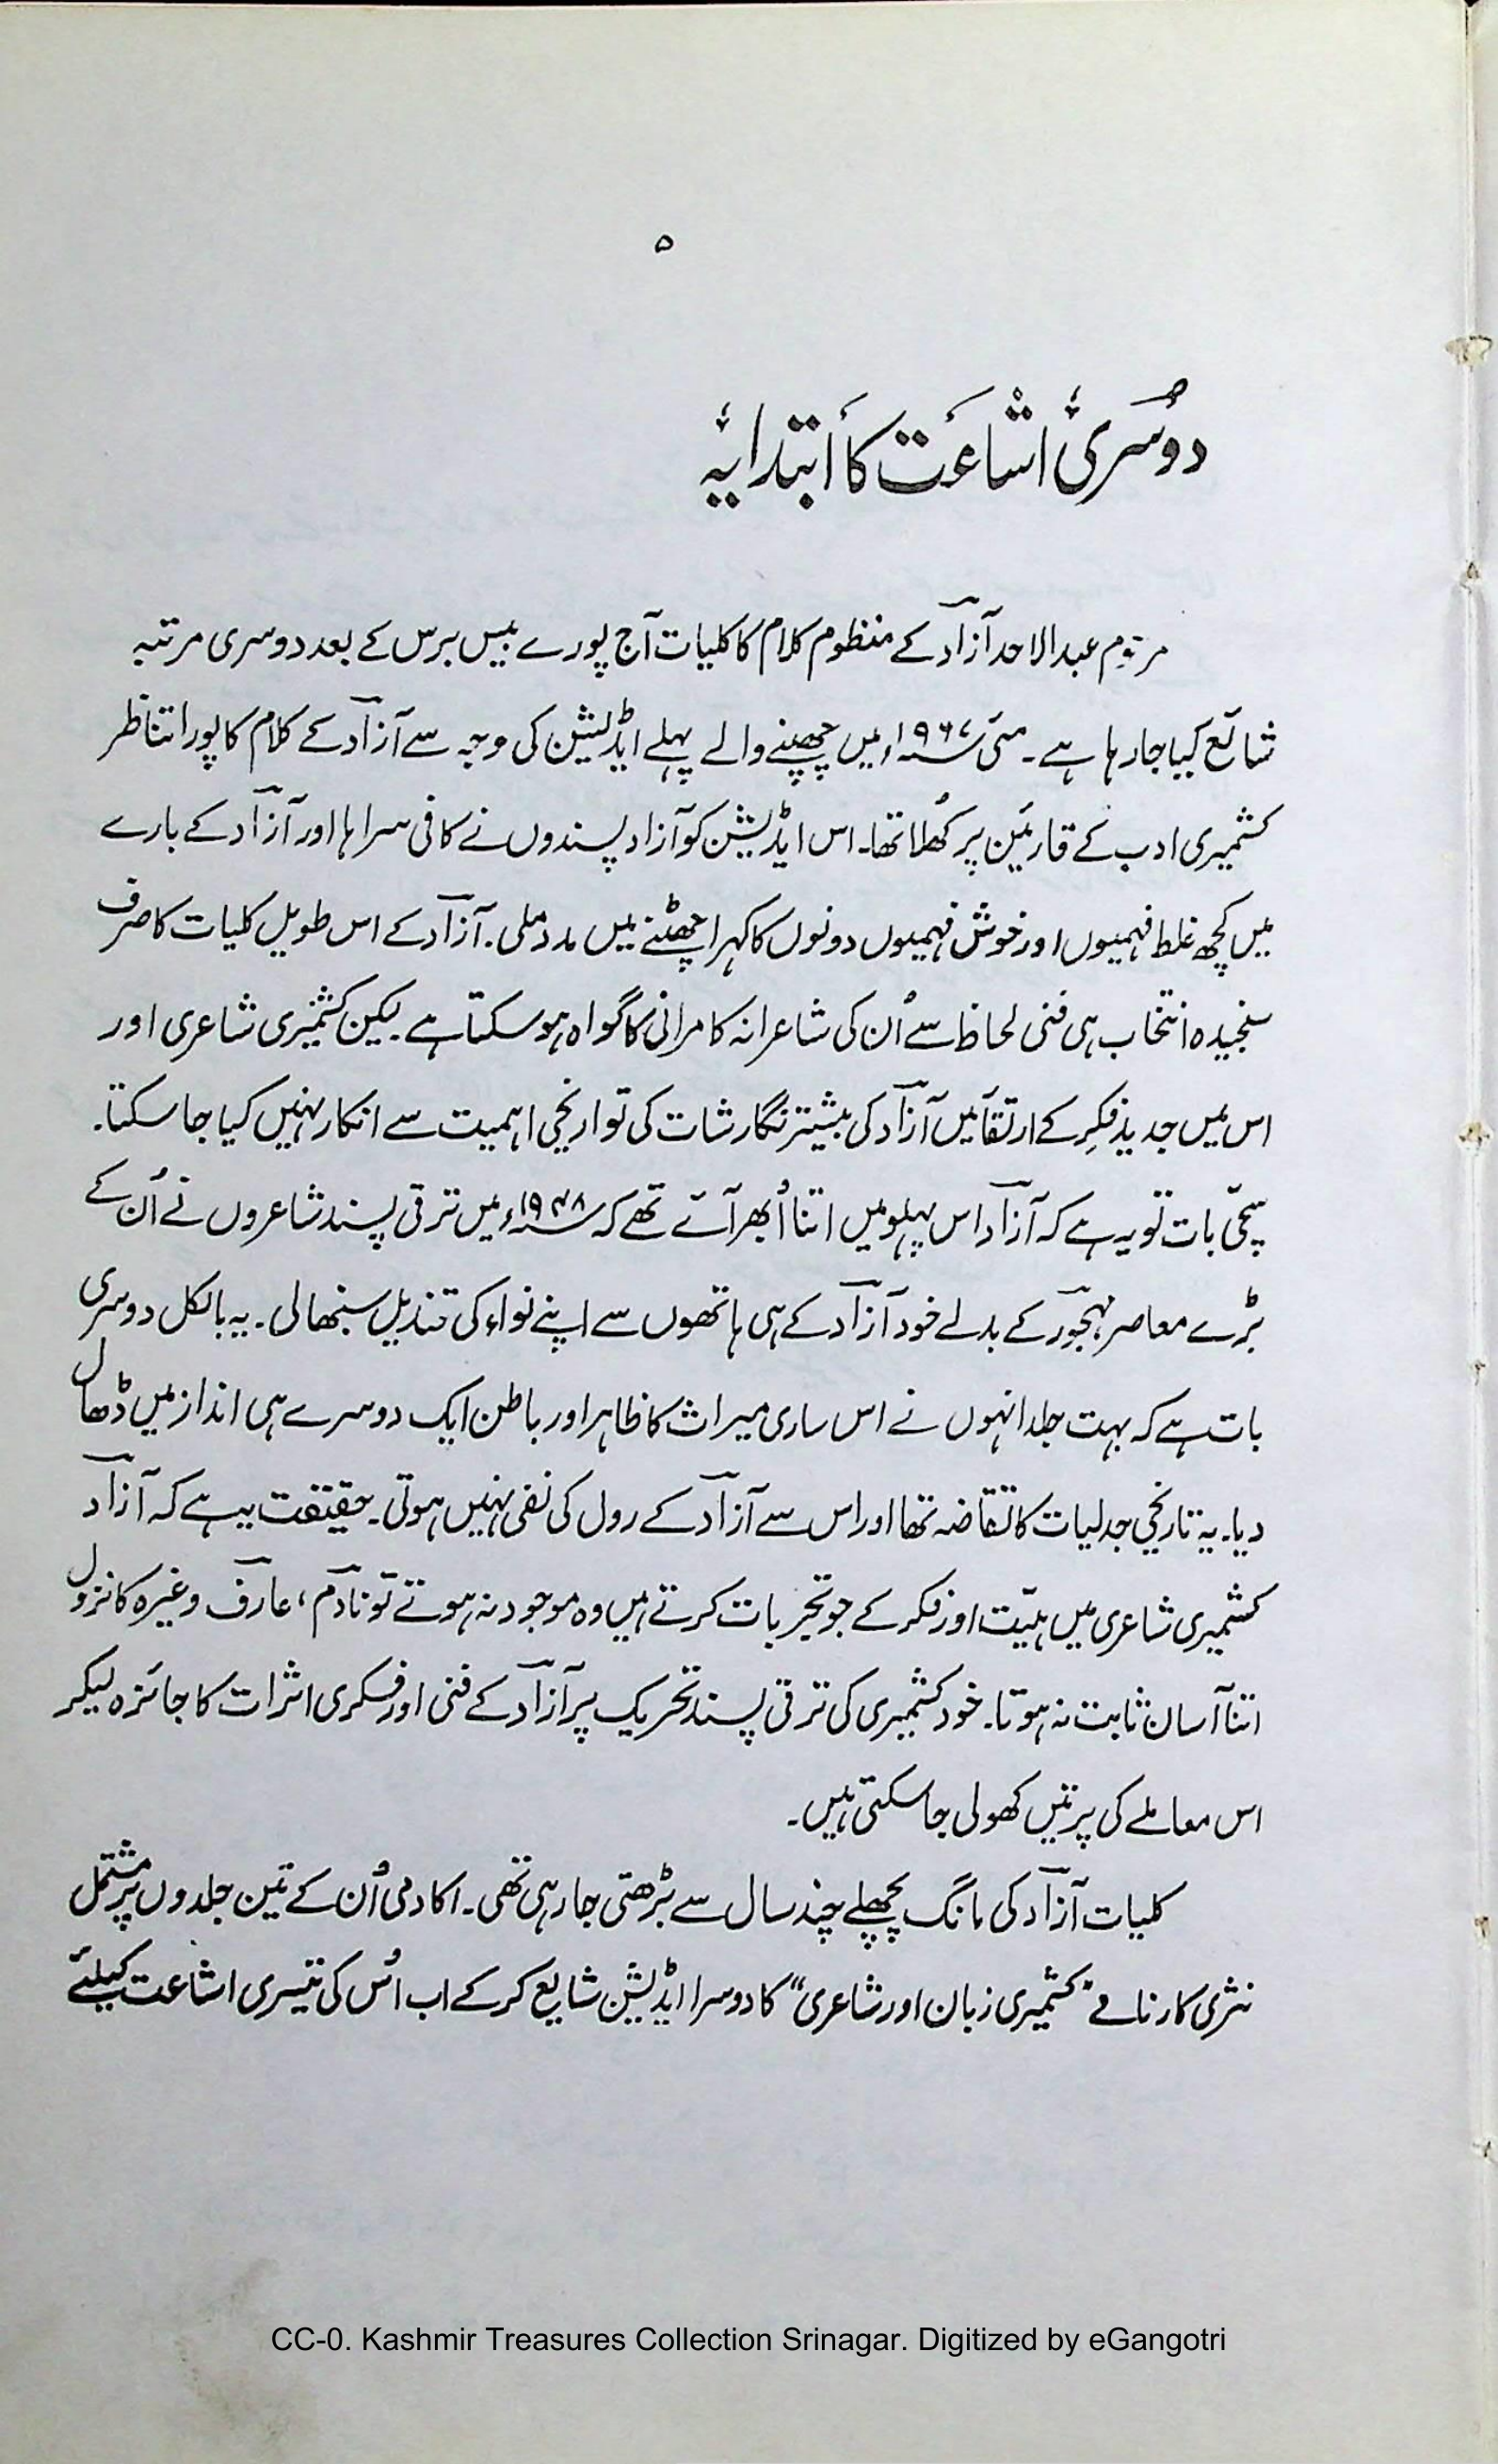 ۵
دوسری اشاعت کا ابتدایہ
مرحوم عبدالاحد آزاد کے منظوم کلام کا کلیات آج پورے بیس برس کے بعد دوسری مرتبہ
شائع کیا جارہا ہے۔ مئی ۱۹۶۷ء میں چھپنے والے پہلے ایڈیشن کی وجہ سے آزاد کے کلام کا پورا تناظر
کشمیری ادب کے قارئین پر کھُلا تھا۔ اس ایڈیشن کو آزاد پسندوں نے کافی سراہا اور آزاد کے بارے
میں کچھ غلط فہمیوں اور خوش فہمیوں دونوں کا کہرا چھٹنے میں مدد ملی۔ آزاد کے اس طویل کلیات کا صرف
سنجیدہ انتخاب ہی فنی لحاظ سے اُن کی شاعرانہ کامرانی کا گواہ ہوسکتا ہے لیکن کشمیری شاعری اور
اس میں جدید فکرِ کے ارتقأ میں آزاد کی بیشتر نگارشات کی تواریخی اہمیت سے انکار نہیں کیا جاسکتا۔
سچّی بات تو یہ ہے کہ آزاد اس پہلو میں اتنا اُبھر آئے تھے کہ ۱۹۴۸ء میں ترقی پسند شاعروں نے اُن کے
بڑے معاصر مہجور کے بدلے خود آزاد کے ہی ہاتھوں سے اپنے نواء کی قندیل سنبھالی۔ یہ بالکل دوسری
بات ہے کہ بہت جلد انہوں نے اس ساری میراث کا ظاہر اور باطن ایک دوسرے ہی انداز میں ڈھال
دیا۔ یہ تاریخی جدلیات کا تقاضہ تھا اور اس سے آزاد کے رول کی نفی نہیں ہوتی۔ حقیقت یہ ہے کہ آزاد
کشمیری شاعری میں ہیّت اور فکر کے جو تجربات کرتے ہیں وہ موجود نہ ہوتے تو نادم، عارف وغیرہ کا نزول
اتنا آسان ثابت نہ ہوتا۔ خود کشمیری کی ترقی پسند تحریک پر آزاد کے فنی اور فکری اثرات کا جائزہ لیکر
اس معاملے کی پرتیں کھولی جاسکتی ہیں۔
کلیات آزاد کی مانگ پچھلے چند سال سے بڑھتی جارہی تھی۔ اکادمی اُن کے تین جلدوں پر مشتمل
نثری کارنامے "کشمیری زبان اور شاعری" کا دوسرا ایڈیشن شایع کرکے اب اُس کی تیسری اشاعت کیلئے
CC-0. Kashmir Treasures Collection Srinagar. Digitized by eGangotri